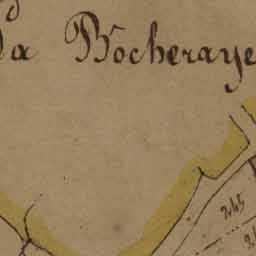 la Bocheraye
245